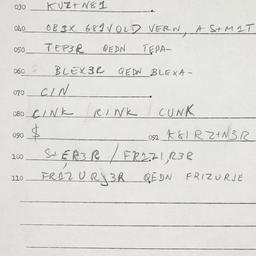 030 KUZ+N81
040 OB3X 681VOLD VERN, A S+M1T
050 TEP3R QEDN TEPA-
060 BLEX3R QEDN BLEXA-
070 CIN
080 CINK RINK CUNK
090 $ 091 K8IRZ+N3R
100 S+ER3R / FR1Z1,R3R
110 FRIZURJ3R QEDN FRIZURJE